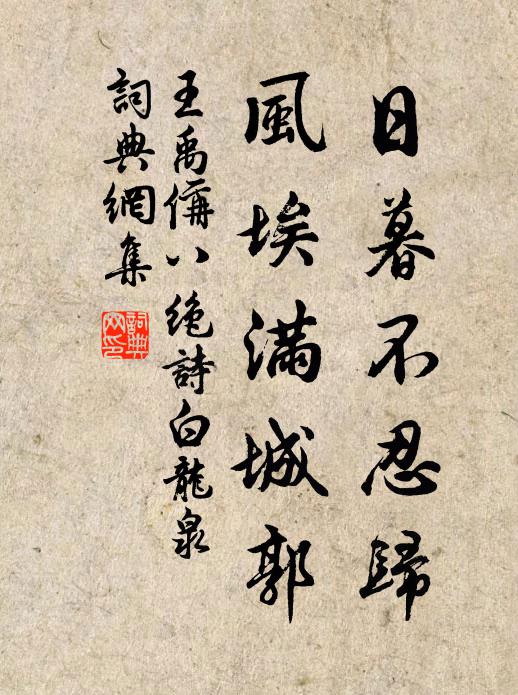 日暮不忍歸
風埃滿城郭
王禹偁八絶詩白龍泉
詞典網集
詞典网印